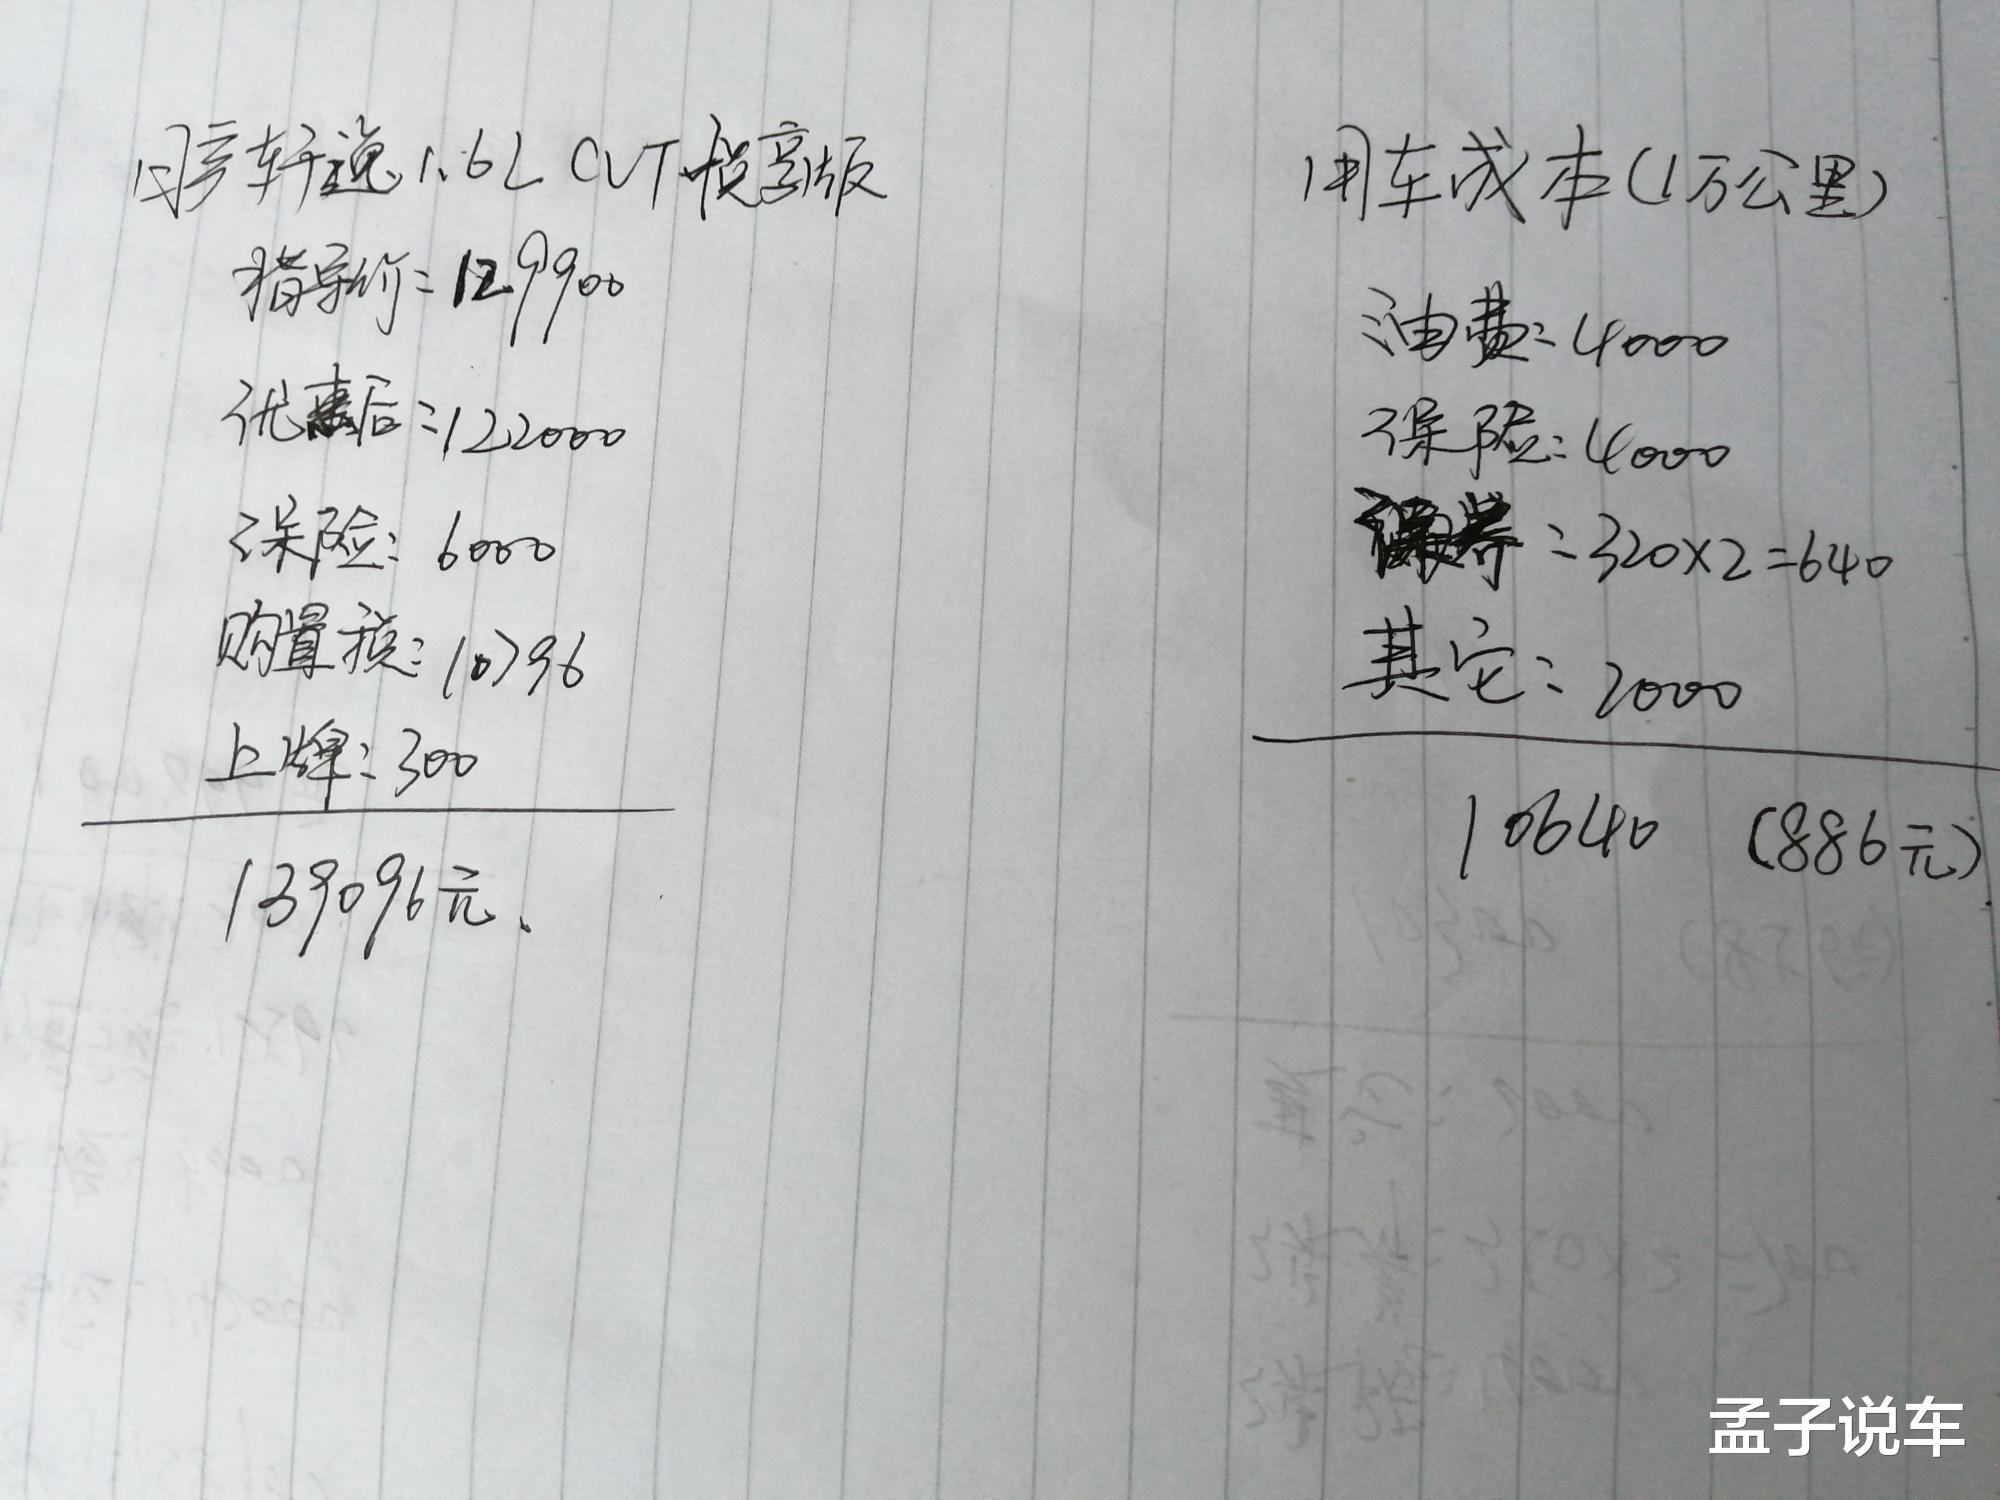 日产轩逸1.6L CVT悦享版
指导价:129900
优惠后:122000
保险:6000
购置税:10796
上牌:300
139096元.
用车成本(1万公里)
油费:4000
保险:4000
保养:320×2=640
其它:2000
10640 (886元)
孟子说车